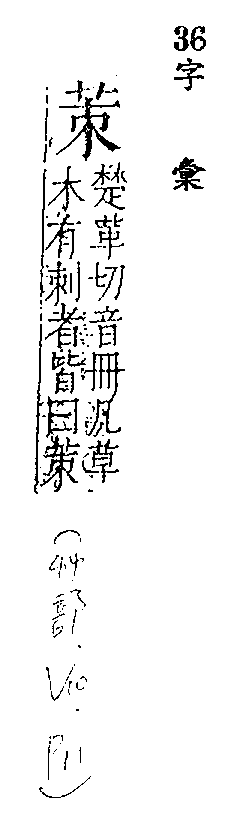 36字彙
茦
楚革切音冊凡草
木有刺者皆曰茦
(艸部.V10.P11)